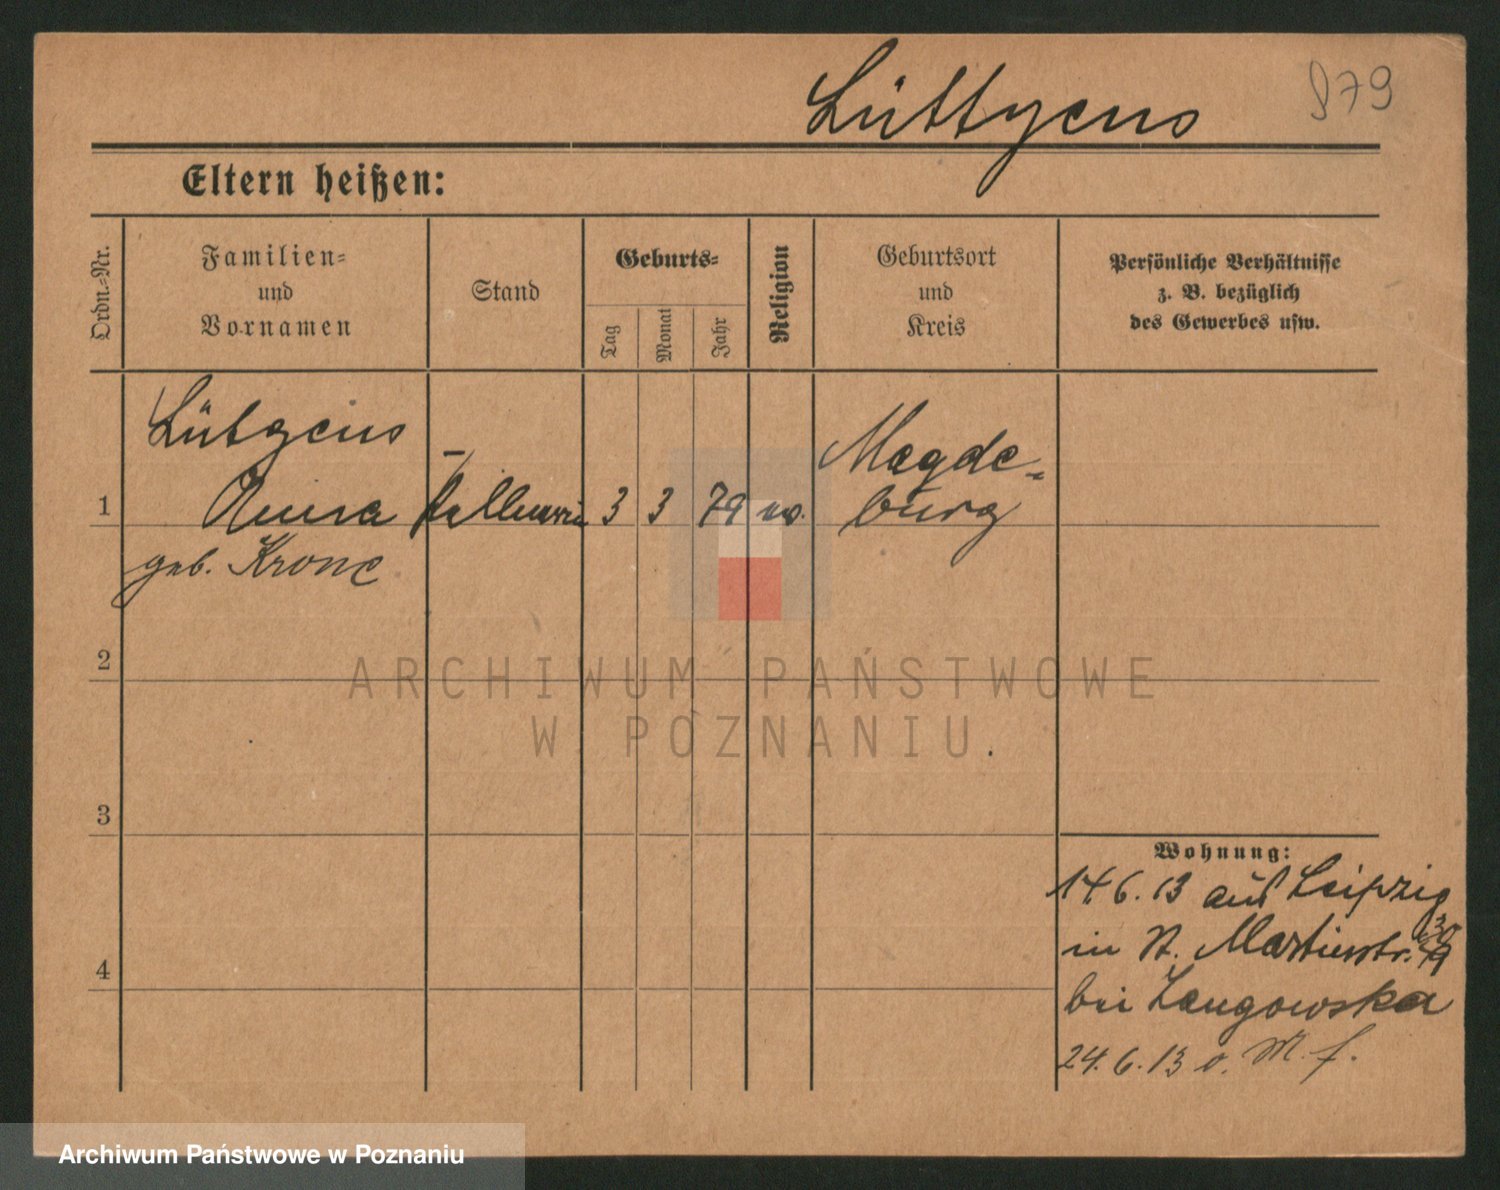 Lüttgens 979
Eltern heißen:
Ordn.=Nr.
Familien=
und
Vornamen
Stand
Geburts=
Tag
Monat
Jahr
Religion
Geburtsort
und
Kreis
Persönliche Verhältnisse
z. B. bezüglich
des Gewerbes usw.
1
Lütgens
Anna
geb. Krone
Kellnerin
3 3 79 ev.
Magde=
burg
2
3
4
Wohnung:
14.6.13 aus Leipzig
in St. Martinstr. 30
bei Langowska
24.6.13 o. M. f.
ARCHIWUM PAŃSTWOWE
W POZNANIU
Archiwum Państwowe w Poznaniu